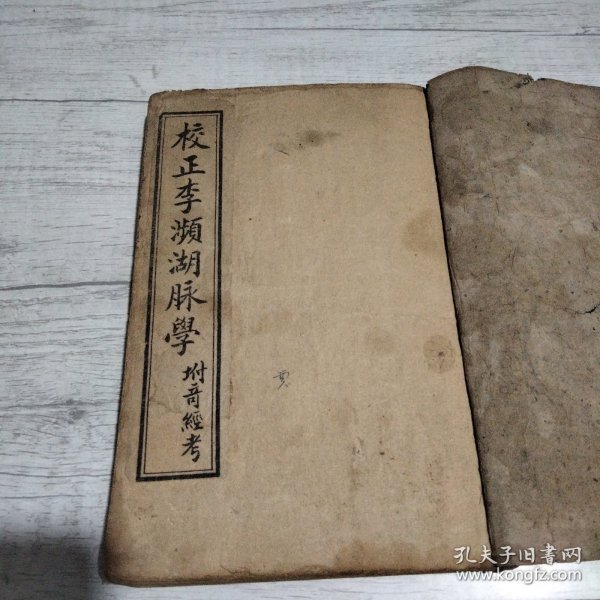 校正李瀕湖脉學
坿奇經考
孔夫子旧書网
www.kongfz.com